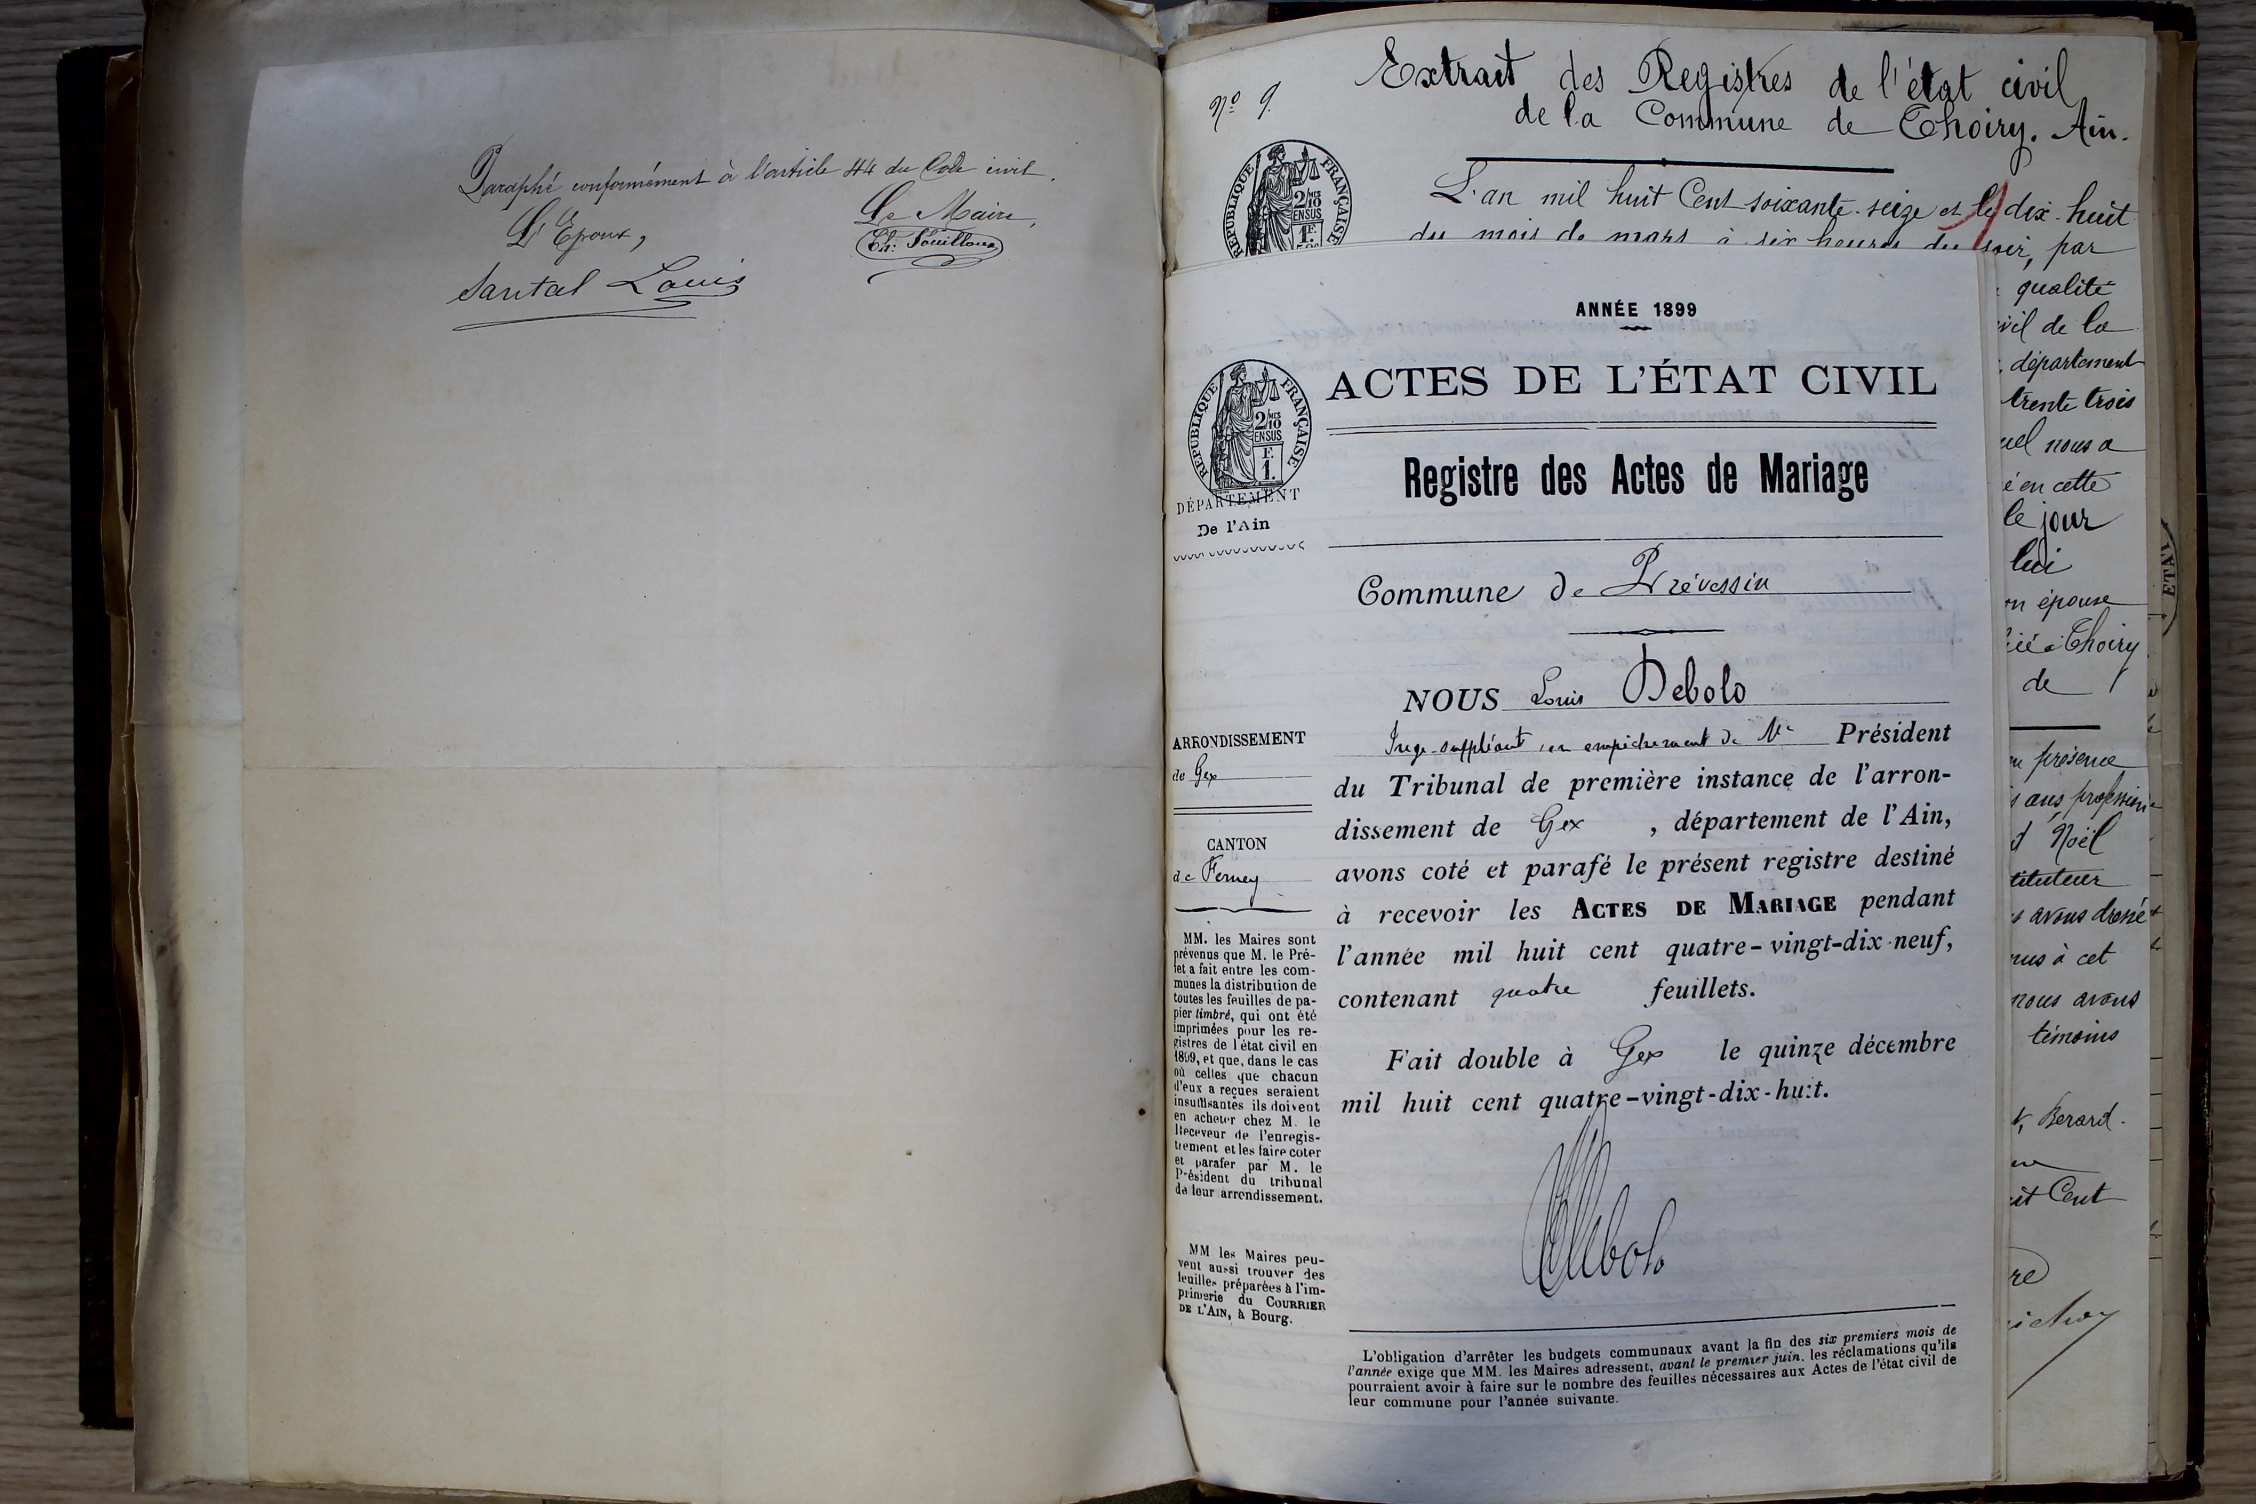 Paraphé conformément à l'article 44 du Code civil.
L'Epoux,
Le Maire,
Santal Louis
N° 9.
Extrait des Registres de l'état civil
de la Commune de Thoiry. Ain.
RÉPUBLIQUE FRANÇAISE
2/10 MES
EN SUS
1 F.
L'an mil huit Cent soixante-seize et le dix-huit
du mois de mars à six heures du soir, par
qualité
vil de la
département
trente trois
uel nous a
é en cette
le jour
lui
on épouse
à Thoiry
de
présence
ans, profession
Noël
tituteur
s avons dressé
nus à cet
nous avons
témoins
Berard.
it Cent
re
ETAT
ANNÉE 1899
ACTES DE L'ÉTAT CIVIL
RÉPUBLIQUE FRANÇAISE
2/10 MES
EN SUS
F.
1.
DÉPARTEMENT
De l'Ain
Registre des Actes de Mariage
Commune de Prévessin
NOUS Louis Debolo
Juge-suppléant, en empêchement de Mr Président
du Tribunal de première instance de l'arron-
dissement de Gex, département de l'Ain,
avons coté et parafé le présent registre destiné
à recevoir les ACTES DE MARIAGE pendant
l'année mil huit cent quatre-vingt-dix-neuf,
contenant quatre feuillets.
Fait double à Gex le quinze décembre
mil huit cent quatre-vingt-dix-huit.
Debolo
ARRONDISSEMENT
de Gex
CANTON
de Ferney
MM. les Maires sont
prévenus que M. le Pré-
fet a fait entre les com-
munes la distribution de
toutes les feuilles de pa-
pier timbré, qui ont été
imprimées pour les re-
gistres de l'état civil en
1899, et que, dans le cas
où celles que chacun
d'eux a reçues seraient
insuffisantes ils doivent
en acheter chez M. le
Receveur de l'enregis-
trement et les faire coter
et parafer par M. le
Président du tribunal
de leur arrondissement.
MM les Maires peu-
vent aussi trouver des
feuilles préparées à l'im-
primerie du COURRIER
DE L'AIN, à Bourg.
L'obligation d'arrêter les budgets communaux avant la fin des six premiers mois de
l'année exige que MM. les Maires adressent, avant le premier juin, les réclamations qu'ils
pourraient avoir à faire sur le nombre des feuilles nécessaires aux Actes de l'état civil de
leur commune pour l'année suivante.